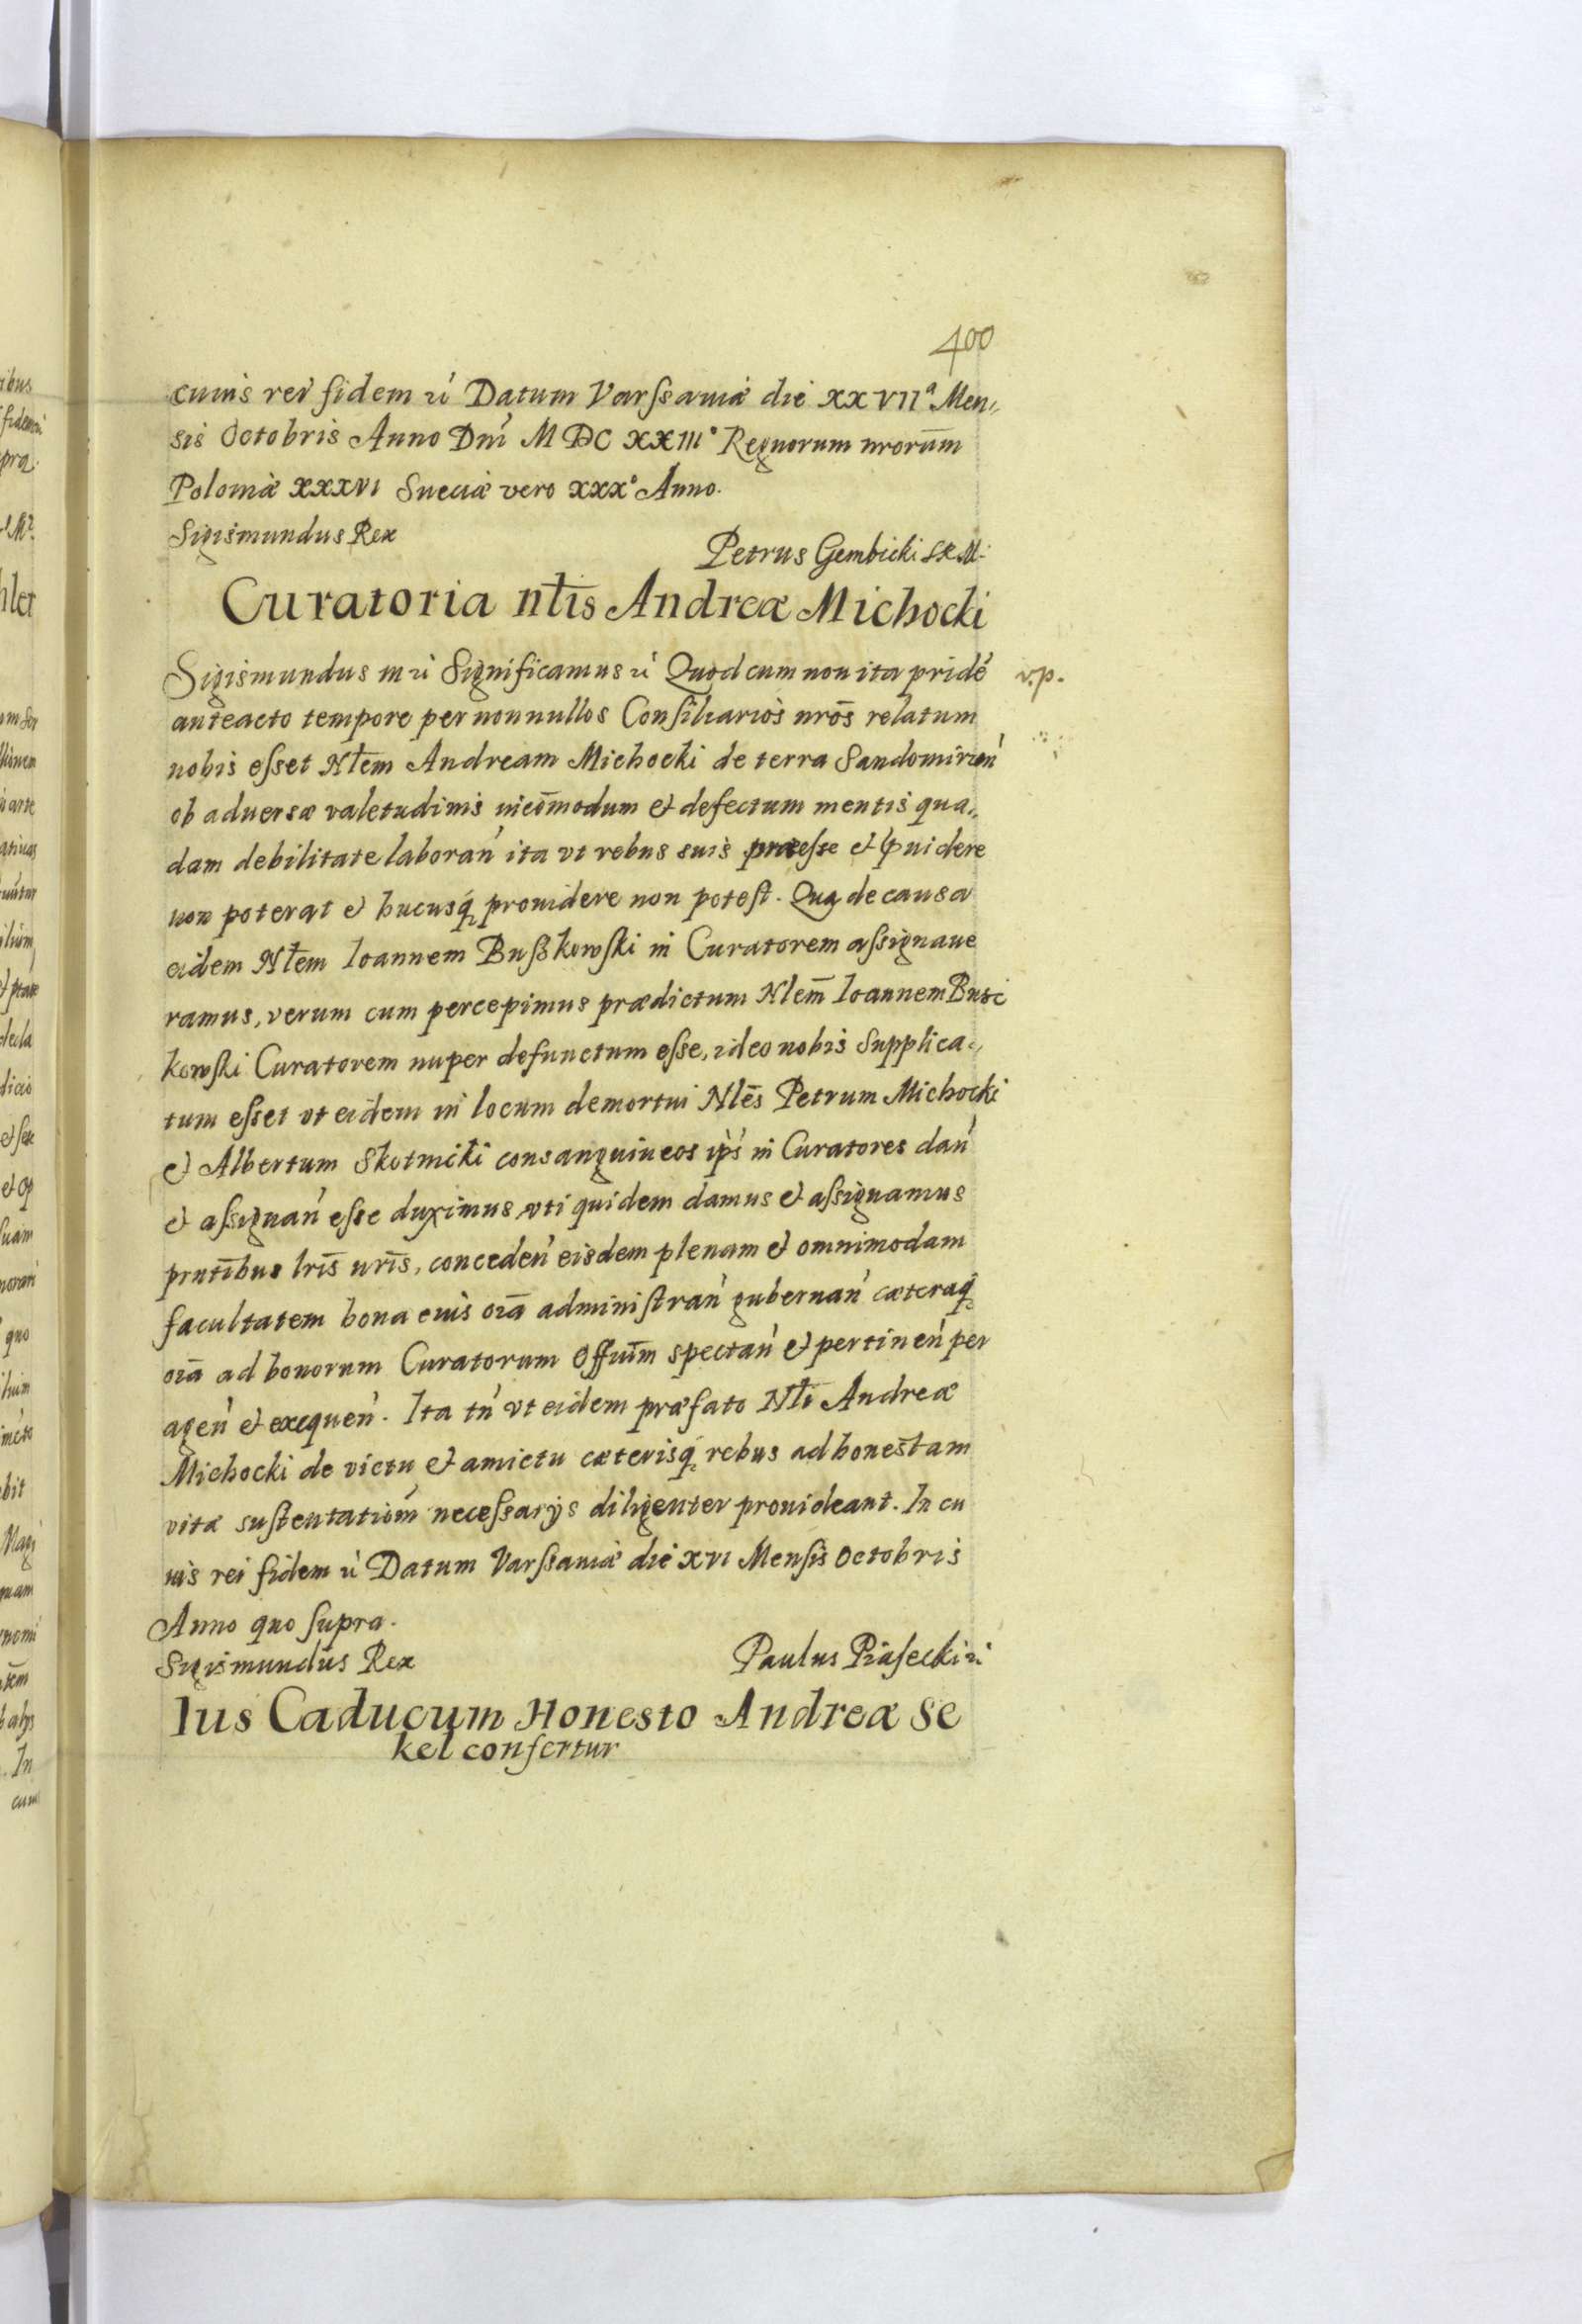 400
cuius rei fidem ú Datum Varſsaviæ die XXVIIª Men=
sis Octobris Anno Dnī MDCXXIIIº Regnorum nrorūm
Poloniæ XXXVI Sueciæ vero XXXº Anno.
Sigismundus Rex
Petrus Gembicki S R M:
Curatoria nłis Andreæ Michocki
Sigismundus m ú Significamus ú Quod cum non ita pridé v.p.
anteacto tempore per nonnullos Conſiliarios nrōs relatum
nobis eſset Nłem Andream Michocki de terra Sandomirień
ob aduersæ valetudinis incōmodum et defectum mentis qua=
dam debilitate laborań ita vt rebus suis præeſse et ꝓuidere
non poterat et hucusq́ prouidere non poteſt. Qua de causa
eidem Nłem Ioannem Buſskowſki in Curatorem aſsignaue
ramus, verum cum percepimus prædictum Nlem̄ Ioannem Busc
kowſki Curatorem nuper defunctum eſse, ideo nobis Supplica=
tum eſset vt eidem in locum demortui Nlēs Petrum Michocki
et Albertum Skotnicki consanguineos ip̀s in Curatores dań
et aſsignań eſse duximus vti quidem damus et aſsignamus
prntībus lrīs nrīs, conceden̍ eisdem plenam et omnimodam
facultatem bona euis oīa adminiſtrań gubernań cæteraq́
oīa ad bonorum Curatorum Offiūm spectań et pertineń per
ageń et exequeń. Ita tń vt eidem præfato Nłi Andreæ
Michocki de victu et amictu cæterisq́ rebus ad honestam
vitæ suſtentatiōm neceſsarijs diligenter prouideant. In cu
ius rei fidem ú Datum Varſsaviæ die XVI Menſis Octobris
Anno quo ſupra.
Sigismundus Rex
Paulus Piaſecki ú
Ius Caducum Honesto Andreæ Se
kel confertur